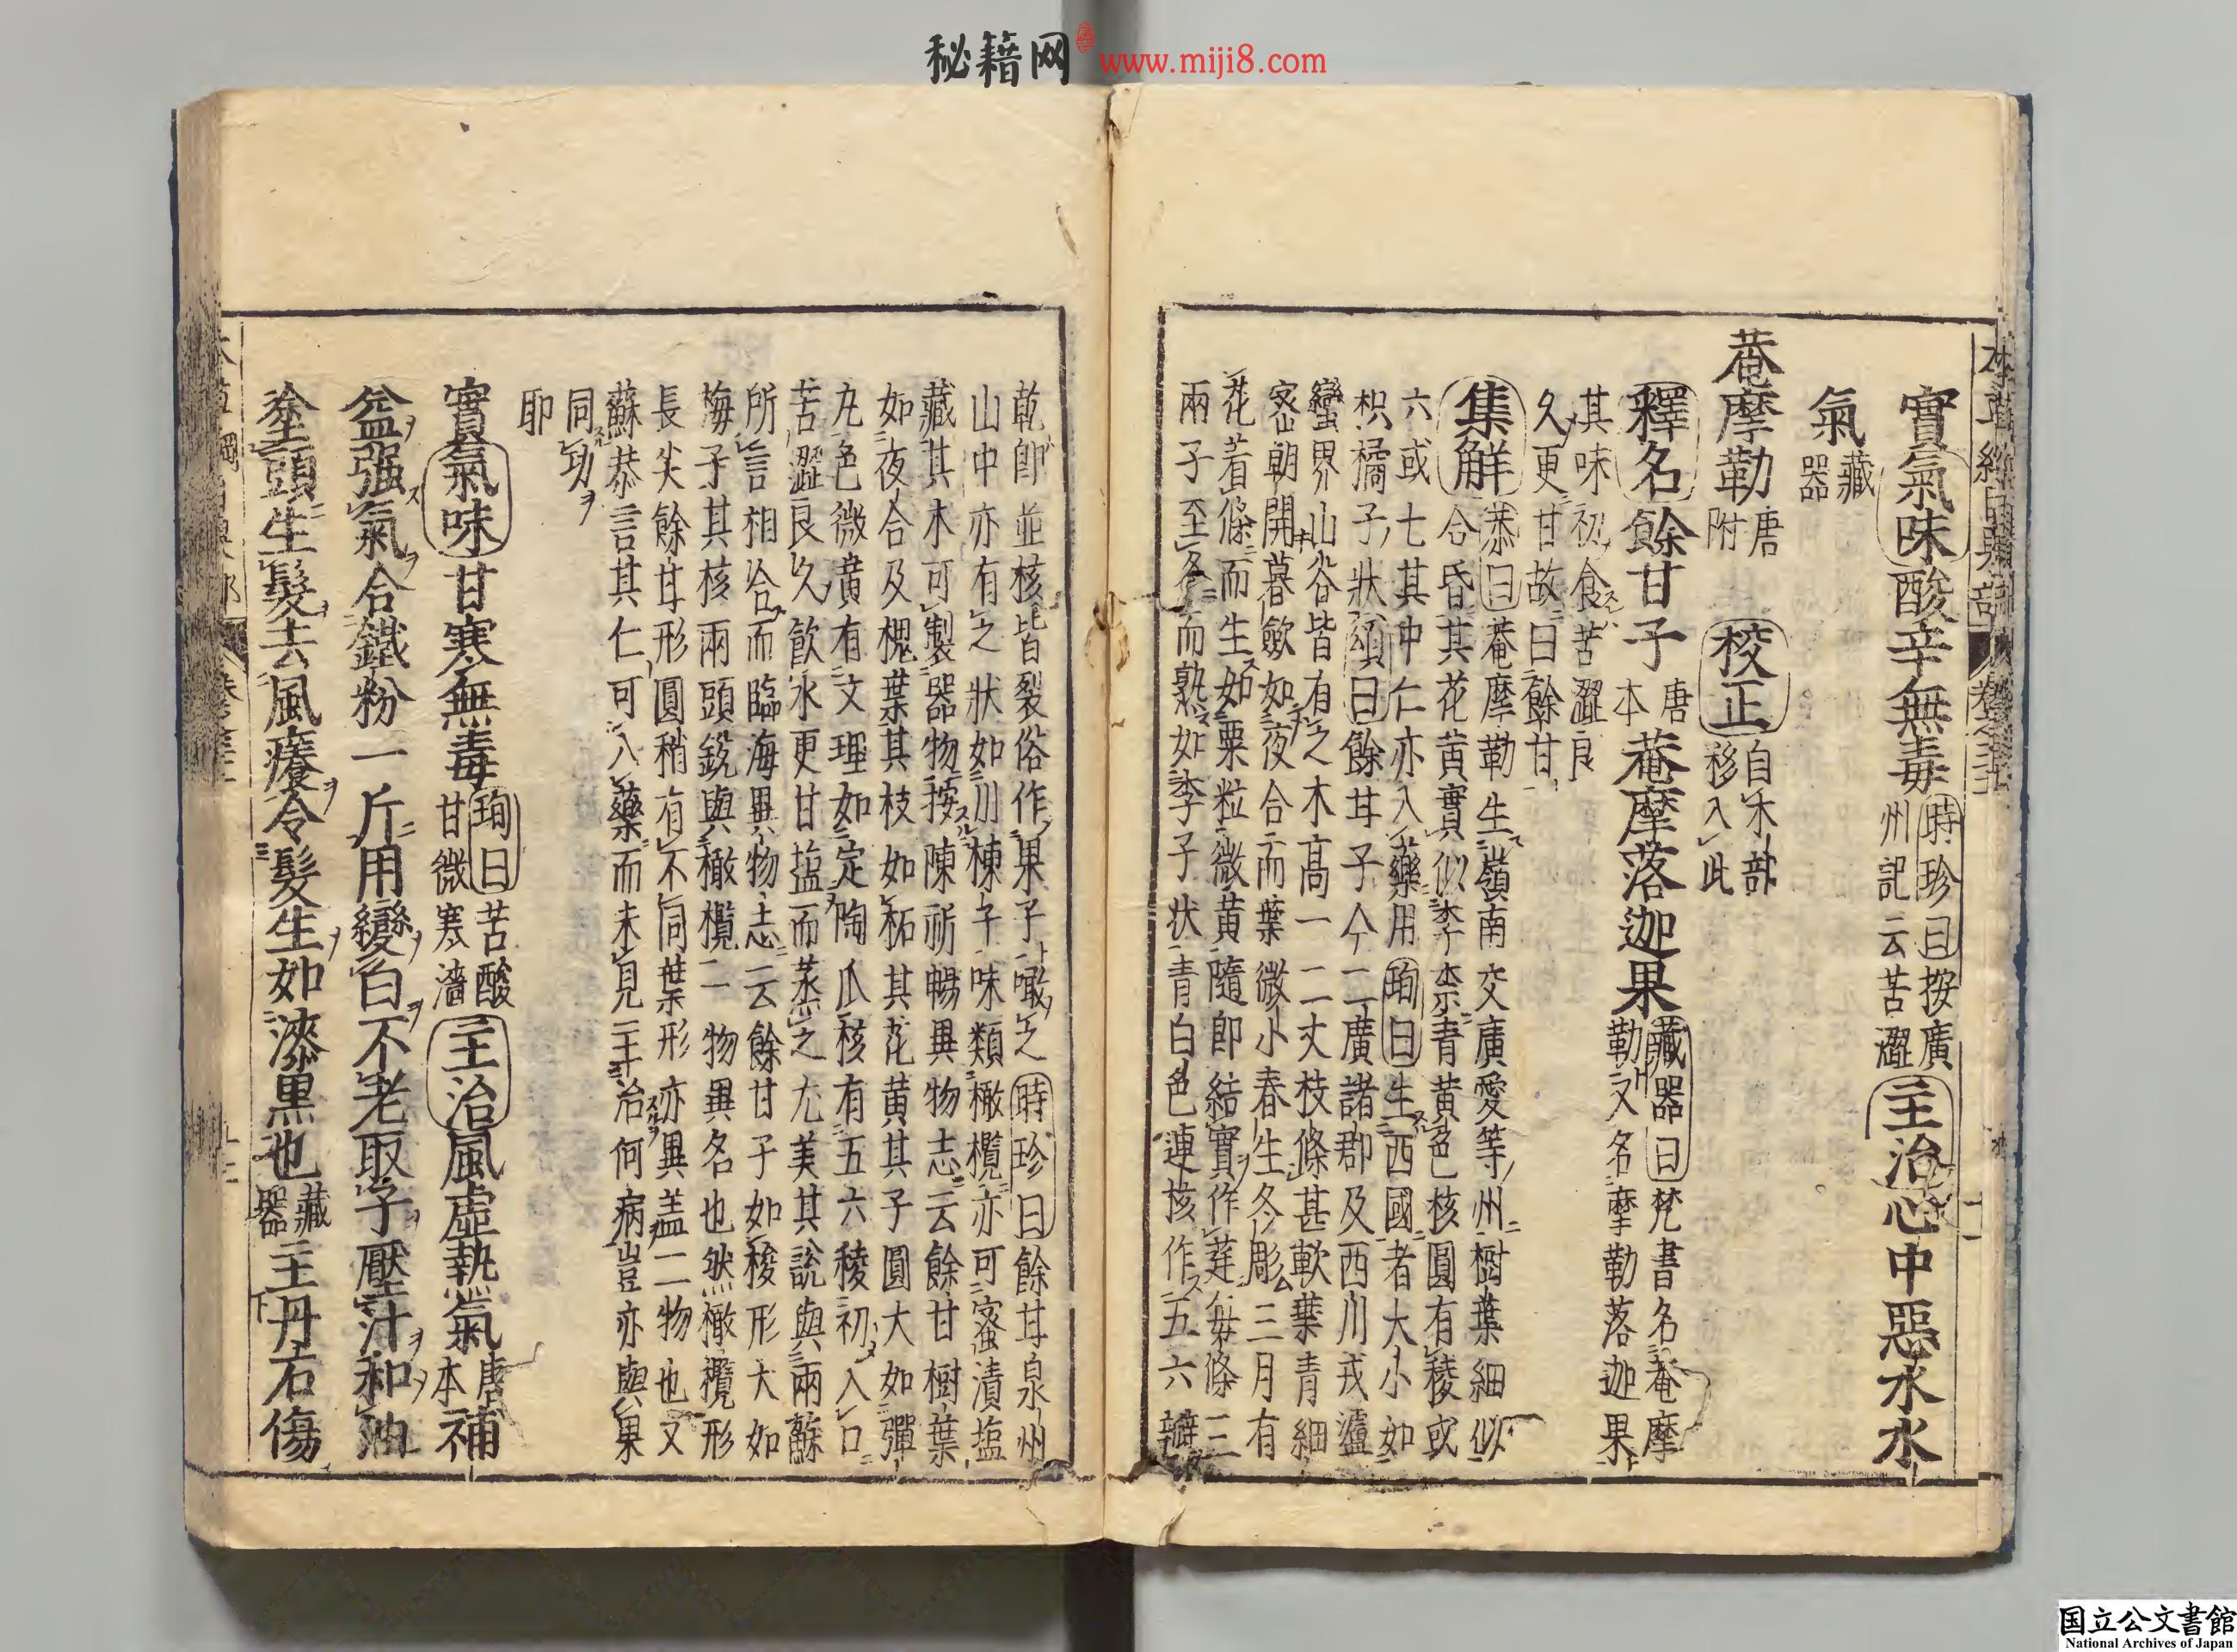 秘籍网 www.miji8.com
本草綱目果部 卷之三十一
實氣味酸辛無毒時珍曰按廣州記云苦澀主治心中惡水水
氣藏器
菴摩勒唐附 校正自木部移入此
釋名餘甘子唐本菴摩落迦果藏器曰梵書名菴摩勒又名摩勒落迦果
其味初食苦澀良
久更甘故曰餘甘
集解恭曰菴摩勒生嶺南交廣愛等州樹葉細似
合昏其花黄實似李柰青黄色核圓有稜或
六或七其中仁亦入藥用珣曰生西國者大小如
枳橘子狀頌曰餘甘子今二廣諸郡及西川戎瀘
蠻界山谷皆有之木高一二丈枝條甚軟葉青細
密朝開暮斂如夜合而葉微小春生冬彫三月有
花着條而生如粟粒微黄隨即結實作莛每條三
兩子至冬而熟如李子状青白色連核作五六瓣
乾即並核皆裂俗作果子噉之時珍曰餘甘泉州
山中亦有之狀如川楝子味類橄欖亦可蜜漬塩
藏其木可製器物按陳祈暢異物志云餘甘樹葉
如夜合及槐葉其枝如柘其花黄其子圓大如彈
丸色微黄有文理如定陶瓜核有五六稜初入口
苦澀良久飮水更甘塩而蒸之尤美其說與兩蘇
所言相合而臨海異物志云餘甘子如梭形大如
梅子其核兩頭銳與橄欖一物異名也然橄欖形
長尖餘甘形圓稍有不同葉形亦異盖二物也又
蘇恭言其仁可入藥而未見主治何病豈亦與果
同功
耶
實氣味甘寒無毒珣曰苦酸甘微寒濇主治風虛熱氣唐本補
益强氣合鐵粉一斤用變白不老取子壓汁和油
塗頭生髮去風癢令髮生如漆黒也藏器主丹石傷
国立公文書館
National Archives of Japan